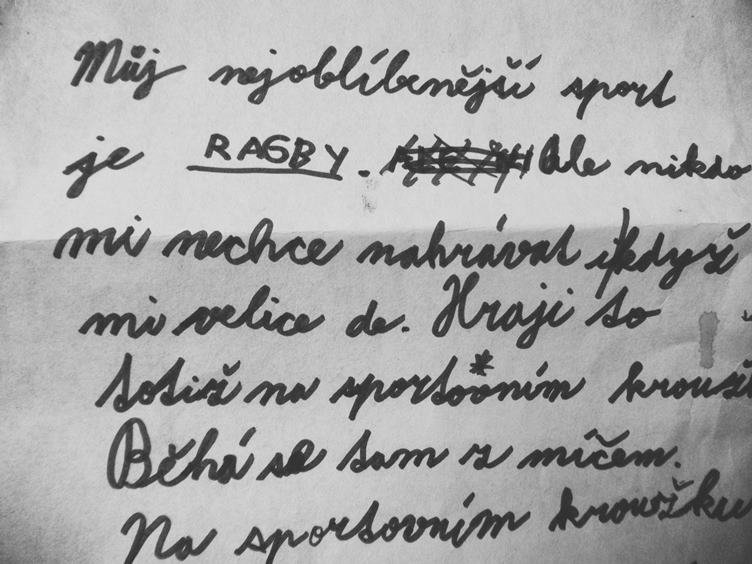 Můj nejoblíbenější sport
je RAGBY. Ale nikdo
mi nechce nahrávat i když
mi velice de. Hraji to
totiž na sportovním
Běhá se tam z míčem.
Na sportovním kroužku